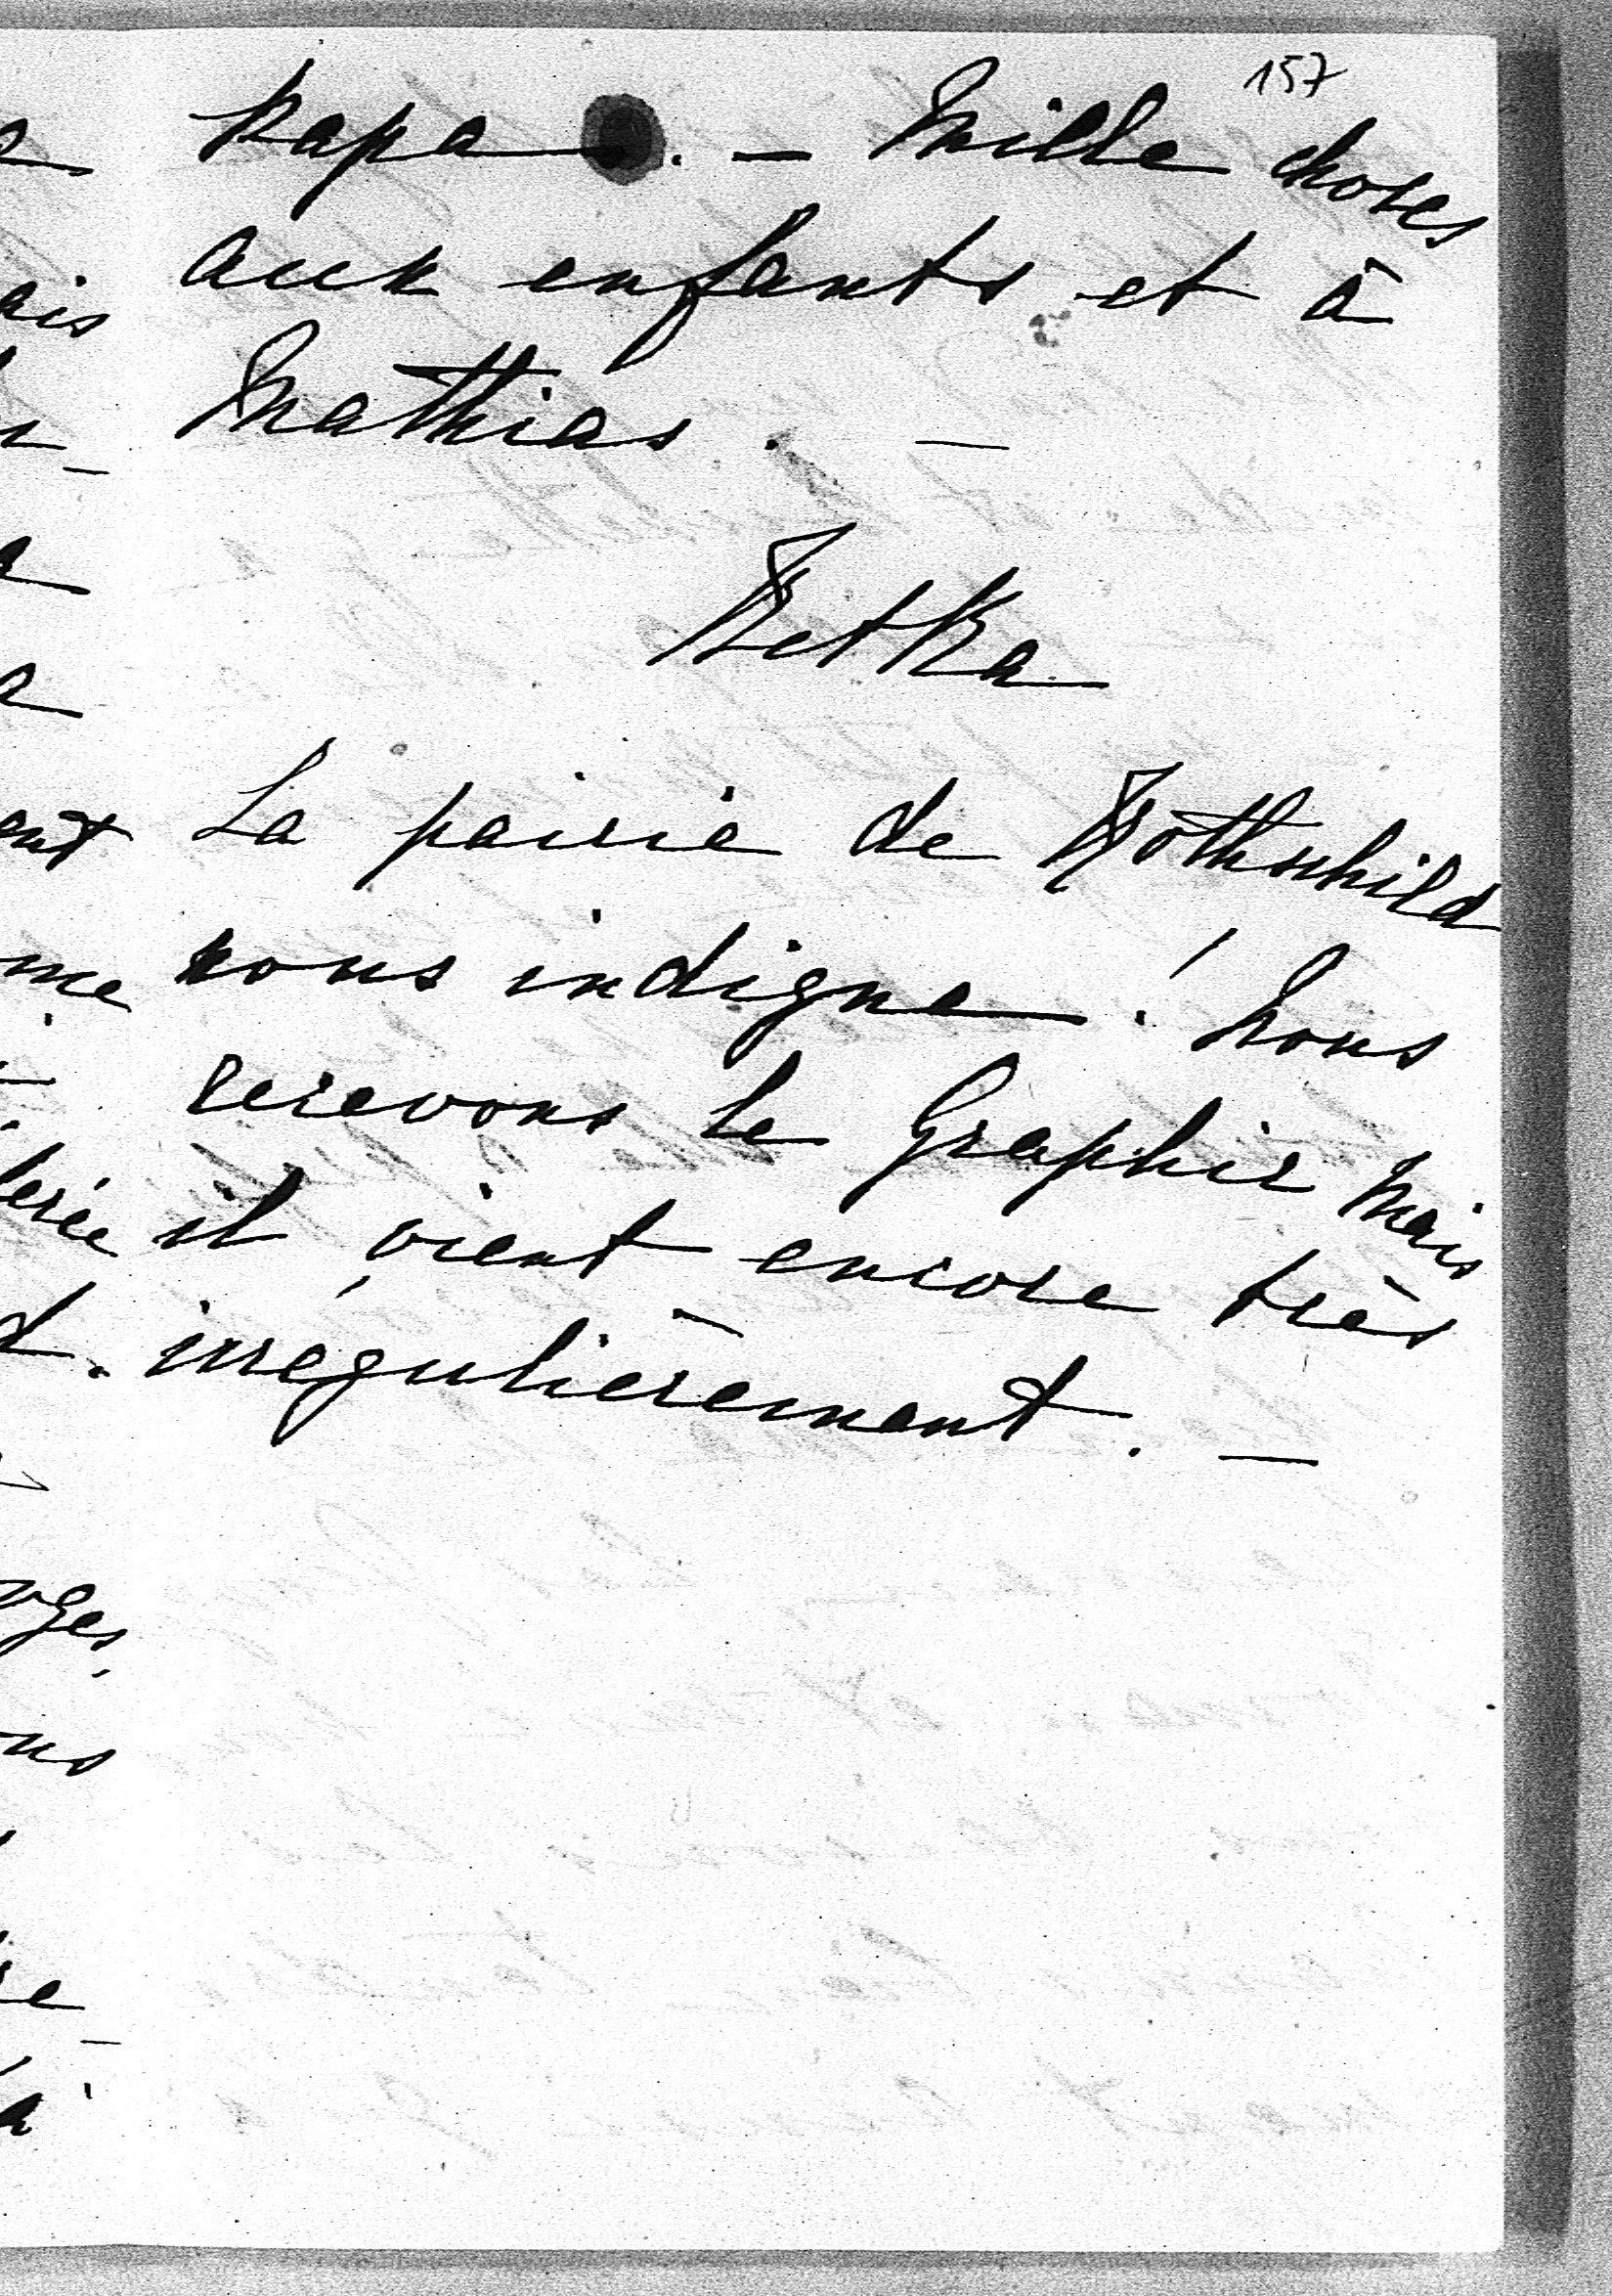 157
Papa. — Mille choses
aux enfants et à
Mathias. —
Retka
La pairie de Rothschild
nous indigne! Nous
recevons le Graphic mais
il vient encore très
irrégulièrement. —